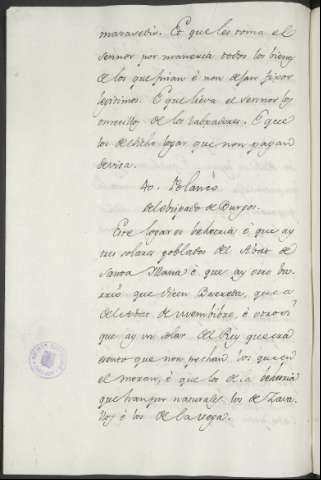 maravedis. Et que les toma el
sennor por maneria todos los bienes
de los que finan è non dejan fijos
legitimos. È que lieva el sennor los
omecillos de los labradores. È que
los de dicho logar que non pagan
devisa.
40. Polanco
del obispado de Burgos.
Este logar es behetria è que ay
tres solares poblados del Abat de
Santa Maria è que ay otro ba-
rrio que dicen
del Abat de è otrosi
que ay un solar del Rey que era
yermo que non pechan los que en
el moran, è que los de la behetria
que han por naturales los de Zava-
llos è los de la vega.